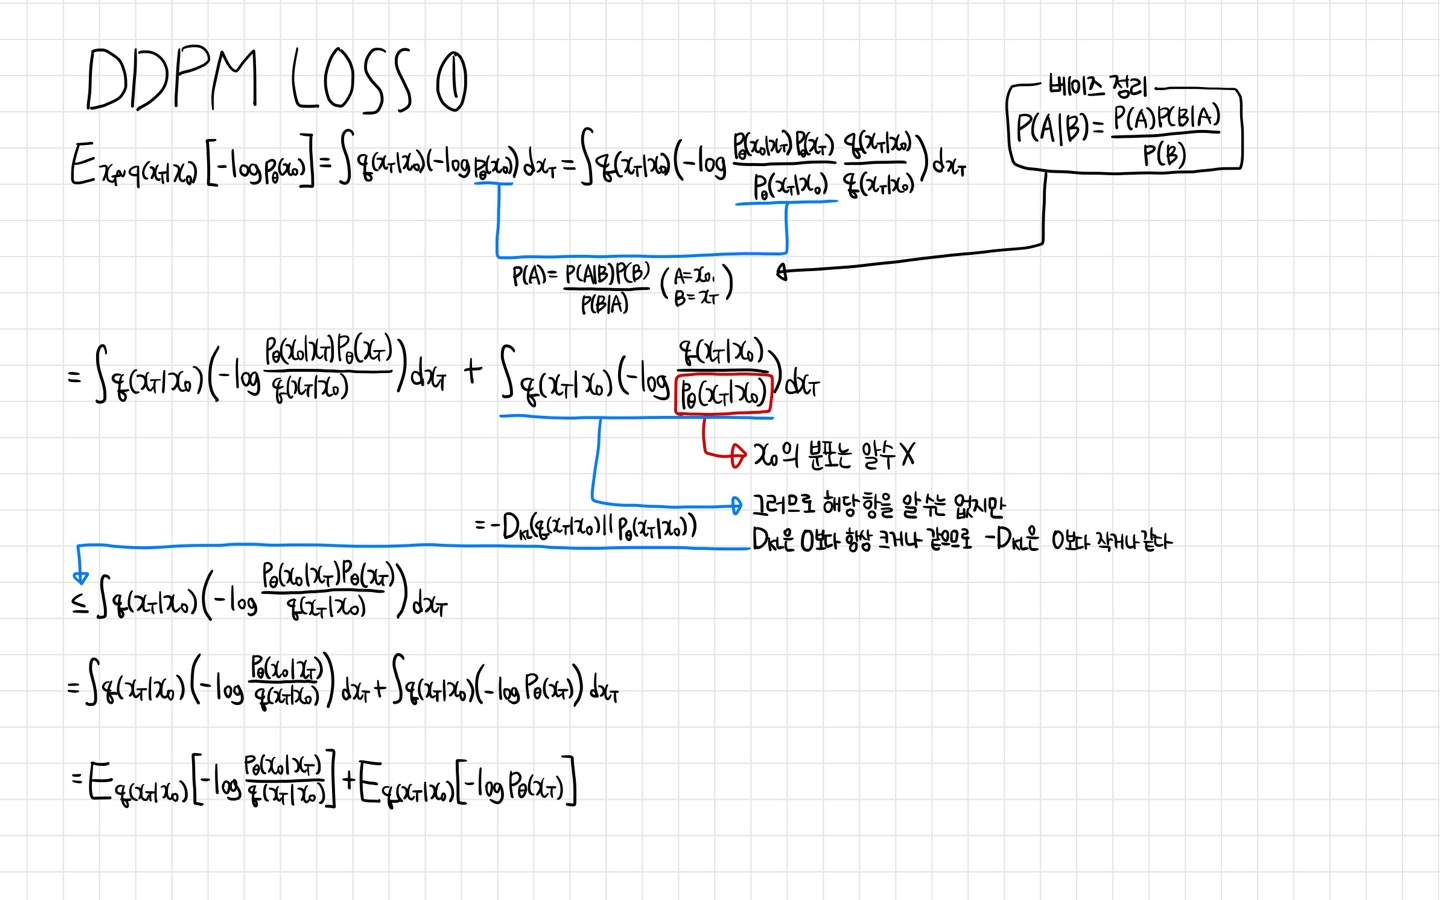 DDPM LOSS ①
베이즈 정리
P(A|B) = P(A)P(B|A) / P(B)
E_{x_T~q(x_T|x_0)} [-log p_θ(x_0)] = ∫ q(x_T|x_0) (-log p_θ(x_0)) dx_T = ∫ q(x_T|x_0) (-log p_θ(x_0|x_T) p_θ(x_T) / p_θ(x_T|x_0) q(x_T|x_0) / q(x_T|x_0)) dx_T
P(A) = P(A|B)P(B) / P(B|A) (A = x_0, B = x_T)
= ∫ q(x_T|x_0) (-log p_θ(x_0|x_T) p_θ(x_T) / q(x_T|x_0)) dx_T + ∫ q(x_T|x_0) (-log q(x_T|x_0) / p_θ(x_T|x_0)) dx_T
x_0의 분포는 알수 X
그러므로 해당 항을 알 수는 없지만
= -D_KL(q(x_T|x_0) || p_θ(x_T|x_0))
D_KL은 0보다 항상 크거나 같으므로 -D_KL은 0보다 작거나 같다
≤ ∫ q(x_T|x_0) (-log p_θ(x_0|x_T) p_θ(x_T) / q(x_T|x_0)) dx_T
= ∫ q(x_T|x_0) (-log p_θ(x_0|x_T) / q(x_T|x_0)) dx_T + ∫ q(x_T|x_0) (-log p_θ(x_T)) dx_T
= E_{q(x_T|x_0)} [-log p_θ(x_0|x_T) / q(x_T|x_0)] + E_{q(x_T|x_0)} [-log p_θ(x_T)]